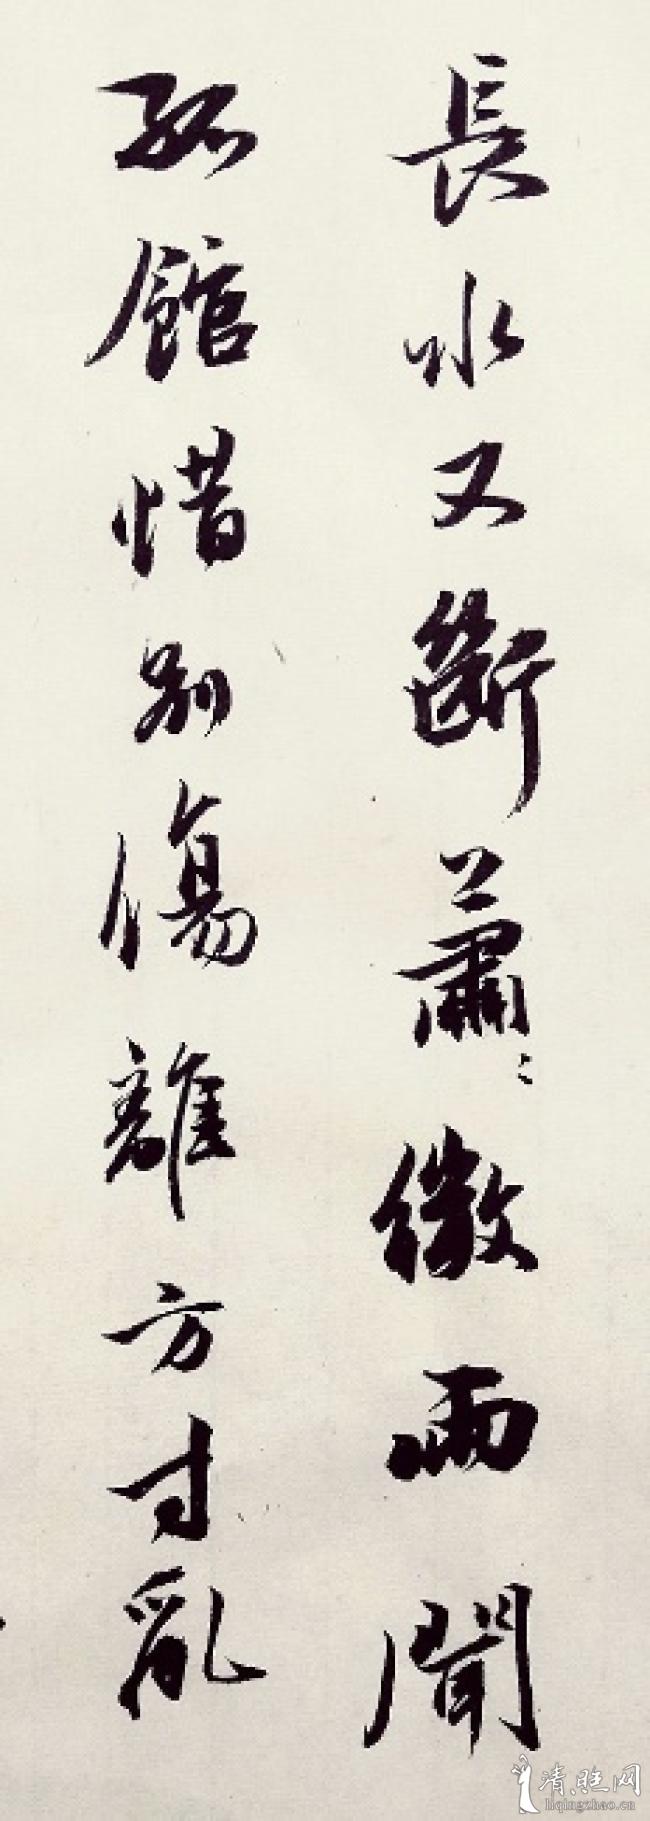 長水又斷蕭〻微雨聞
孤館惜別傷離方寸亂
清照网
liqingzhao.cn